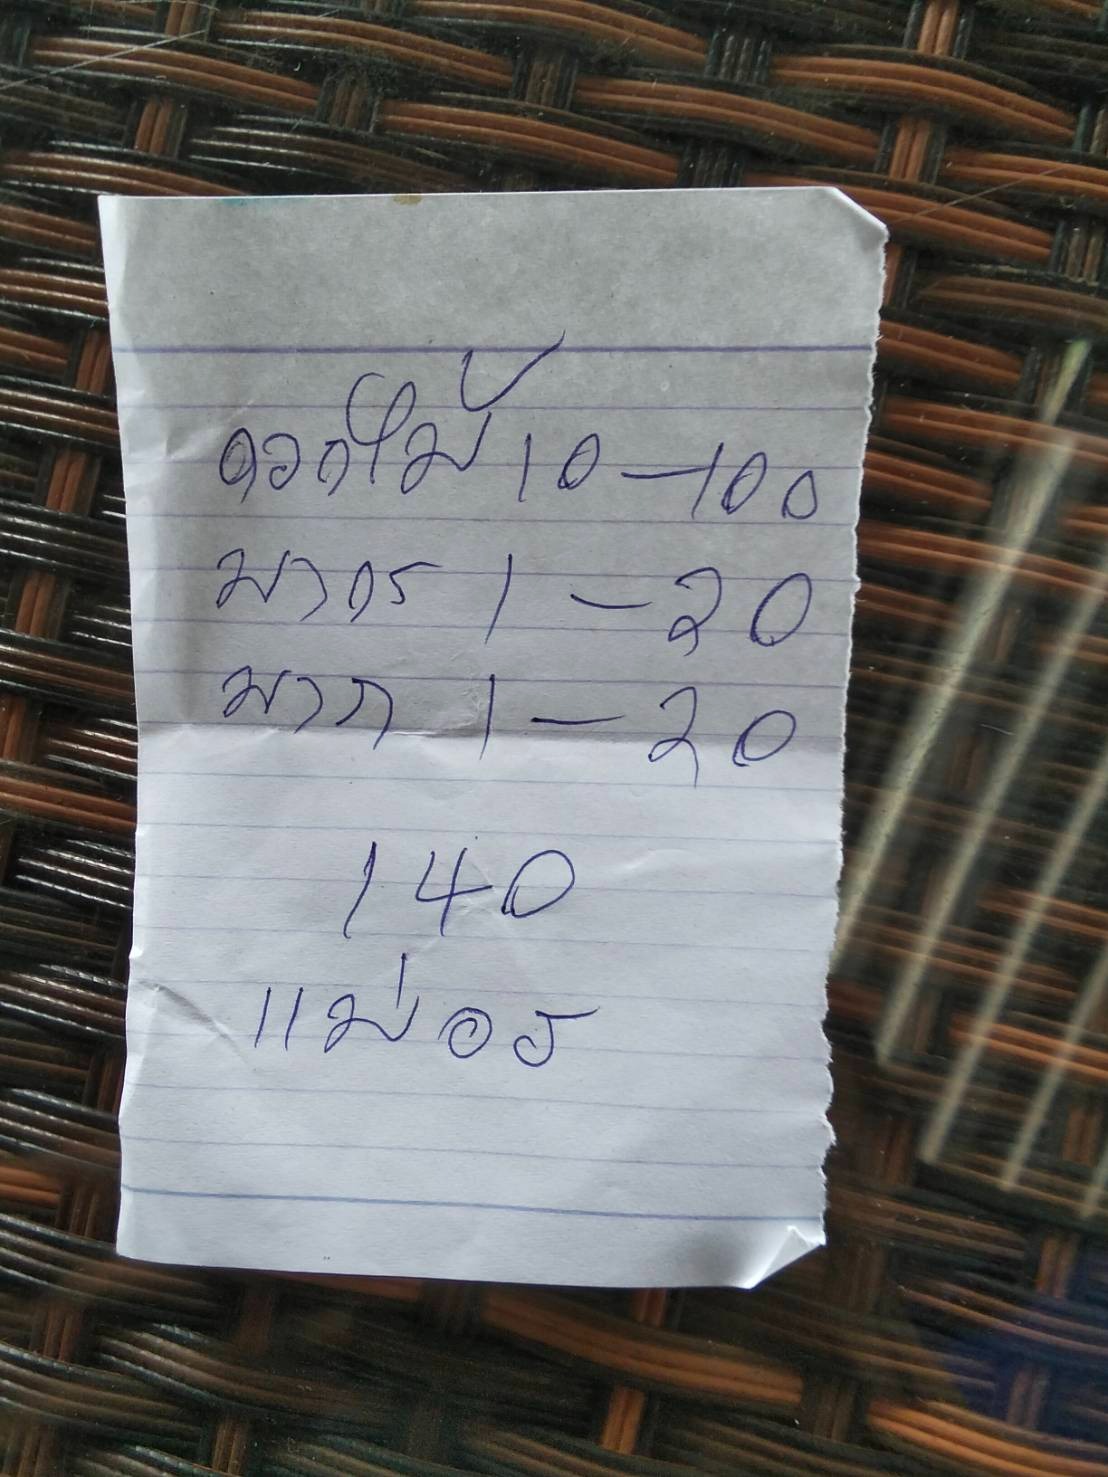 ดอกไม้ 10 - 100
มาดร 1 - 20
มาก 1 - 20
140
แม่อร